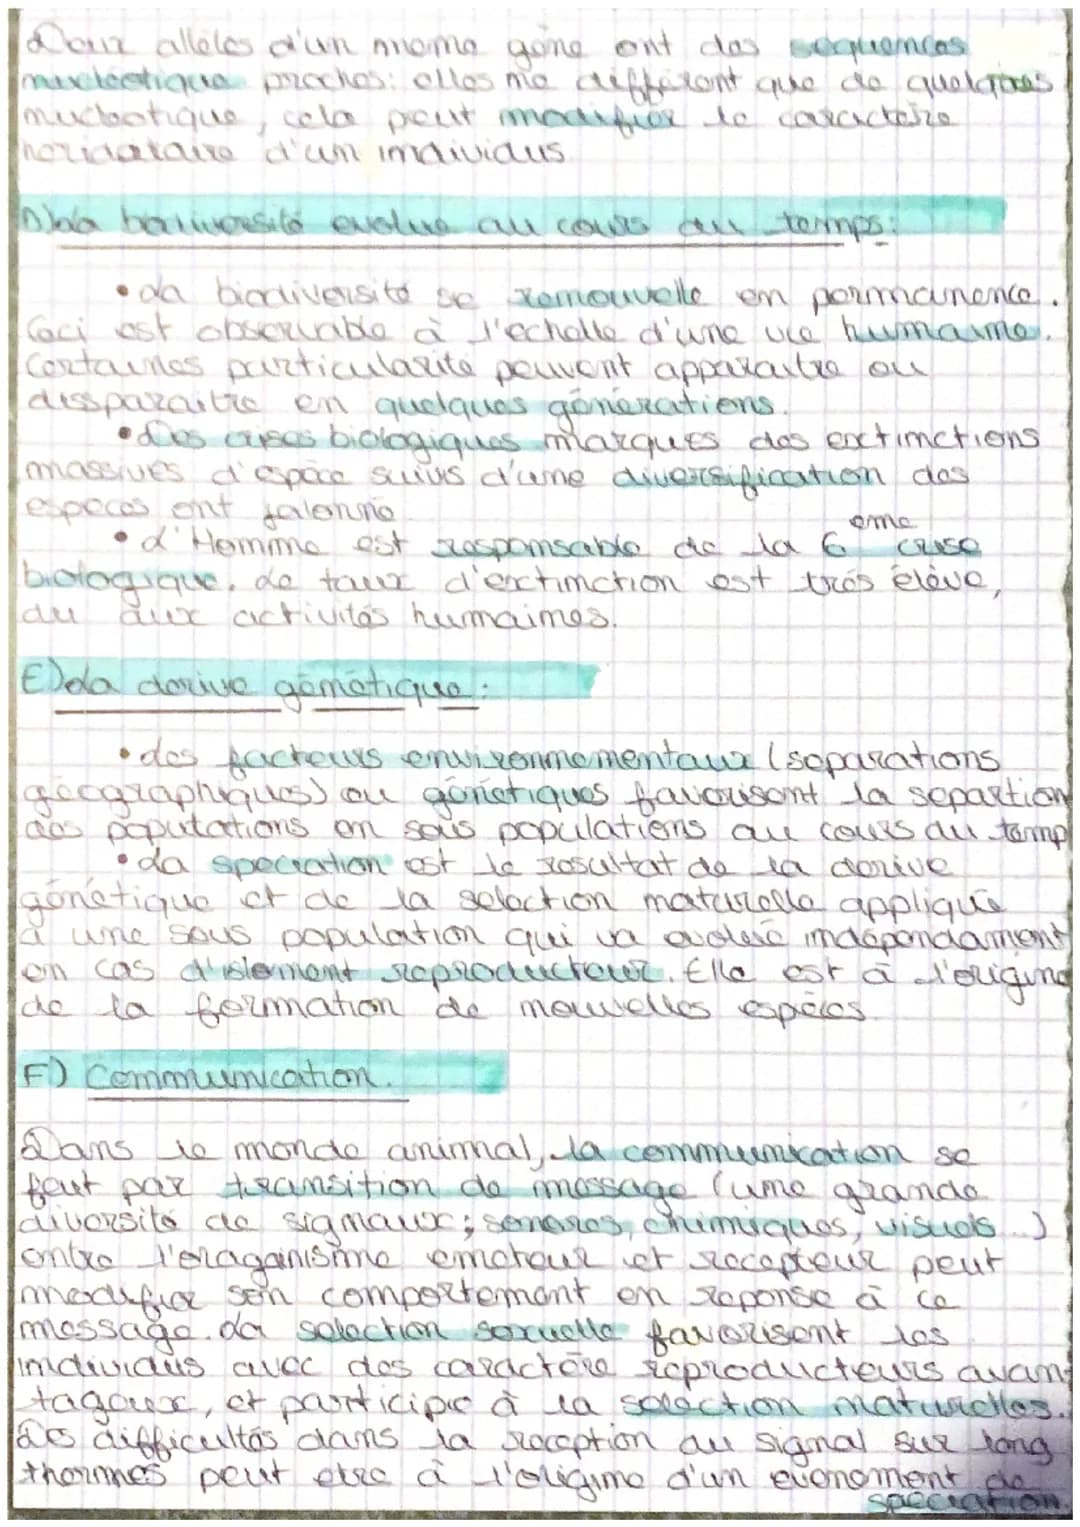 Deux allèles d'un meme gène ont des sequences
nucléotique proches: elles ne diffèrent que de quelques
nucleotique, cela peut modifier le caractère
heridataire d'un individus
D) La bodiversité evolue au cours du temps:
• La biodiversité se renouvelle en permanence.
Ceci est observable à l'echelle d'une vie humaine.
Certaines particularité peuvent apparaitre ou
dissparaitre en quelques générations.
• Des crises biologiques marques des extinctions
massives d'espèce suivis d'une diversification des
especes ont jalonné
• L'Homme est responsable de la 6 eme crise
biologique. Le taux d'extinction est très élève,
du aux activités humaines.
E) La derive génétique:
• des facteurs environnementaux (separations
géographiques) ou génétiques favorisent la sepation
des populations en sous populations au cours du temp
• La speciation est le resultat de la derive
génétique et de la selection naturelle appliquée
à une sous population qui va evolué indépendament
en cas d'islement reproducteur. Elle est à l'origine
de la formation de nouvelles espèces.
F) Communication.
Dans le monde animal, la communication se
fait par transition de message (une grande
diversité de signaux; sonores, chimiques, visuels...)
entre l'eraganisme emeteur et recepteur peut
modifier son comportement en reponse à ce
message. La selection sexuelle favorisent les
individus avec des caractère reproducteurs avan-
tageux, et participe à la selection naturelles.
Des difficultés dans la reception du signal sur long
thermes peut etre à l'origine d'un evenement de
speciation.